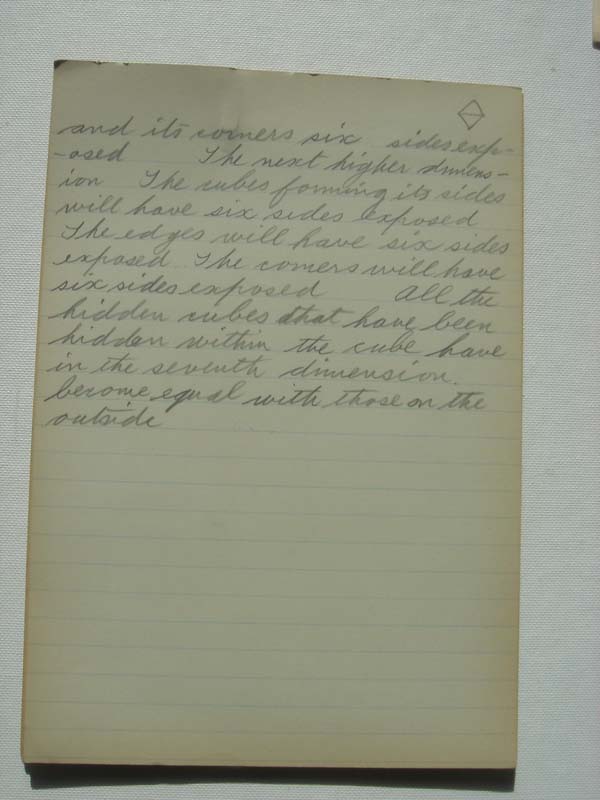 and its corners six sides exp-
-osed The next higher dimens-
ion The cubes forming its sides
will have six sides exposed
The edges will have six sides
exposed. The corners will have
six sides exposed All the
hidden cubes that have been
hidden within the cube have
in the seventh dimension.
become equal with those on the
outside